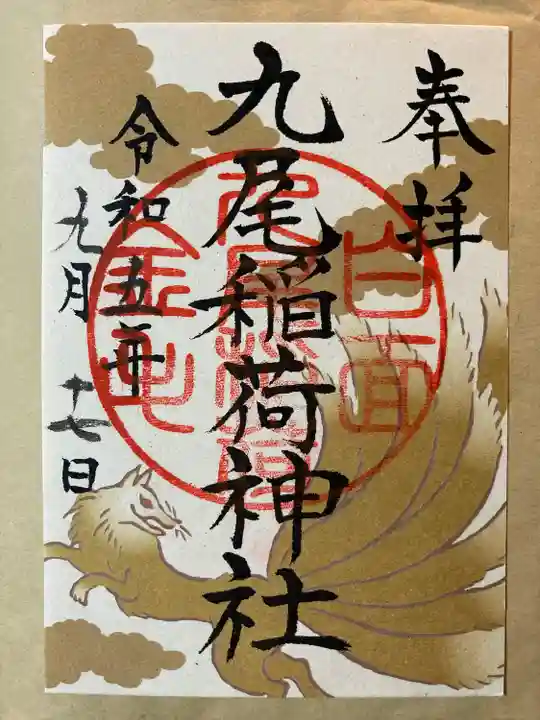 奉拝
九尾稲荷神社
令和五年
九月十七日
白面
金毛